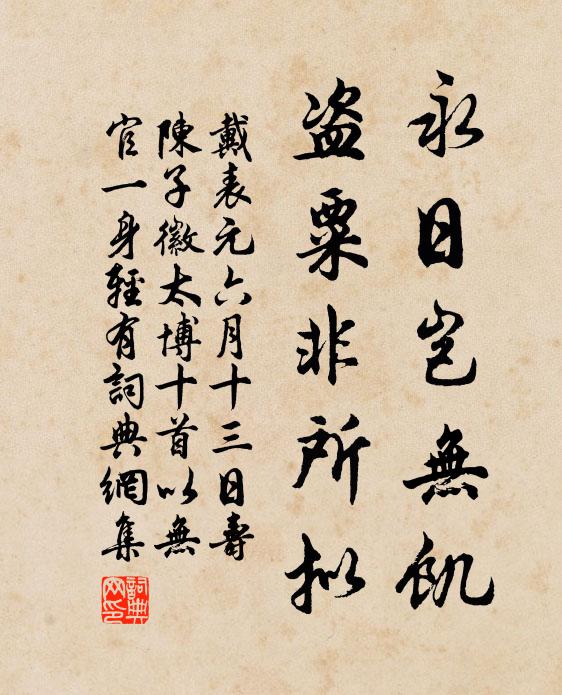 永日岂無飢
盗粟非所拟
戴表元六月十三日壽
陳子徽太博十首以無
官一身輕有詞典網集
詞典
网印